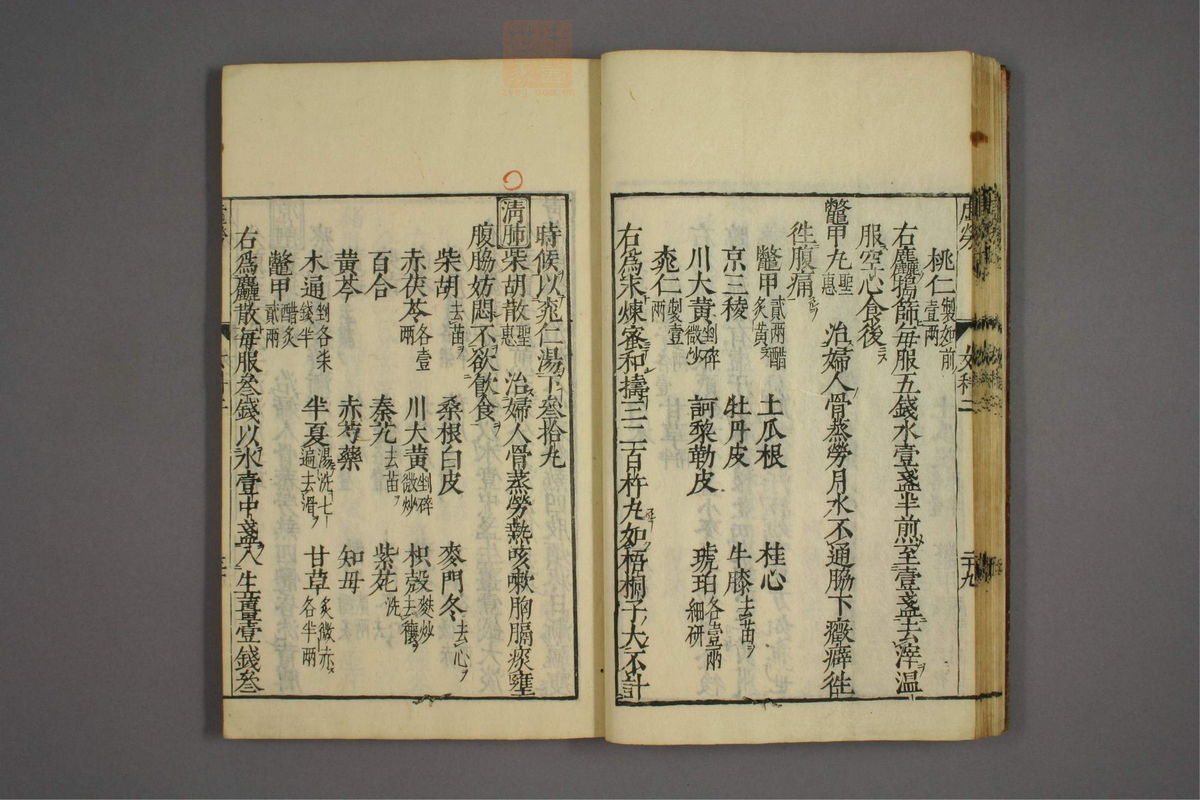 桃仁製如前壹兩
右麤搗篩每服五錢水壹盞半煎至壹盞去滓温
服空心食後
鼈甲丸聖惠 治婦人骨蒸勞月水不通脇下癥癖徃
徃腹痛
鼈甲貳兩醋炙黄 土瓜根 桂心
京三稜 牡丹皮 牛膝去苗
川大黄剉碎微炒 訶黎勒皮 琥珀各壹兩細研
桃仁製壹兩
右爲末煉蜜和擣三二百杵丸如梧桐子大不計
女科二
二十九
時候以桃仁湯下叁拾丸
清肺 柴胡散聖惠 治婦人骨蒸勞熱咳嗽胸膈痰壅
腹脇妨悶不欲飲食
柴胡去苗 桑根白皮 麥門冬去心
赤茯苓各壹兩 川大黄剉碎微炒 枳殼麩炒去穰
百合 秦艽去苗 紫菀洗
黄芩 赤芍藥 知母
木通剉各柒錢半 半夏湯洗七遍去滑 甘草炙微赤各半兩
鼈甲醋炙貳兩
右爲麤散每服叁錢以水壹中盞入生薑壹錢叁